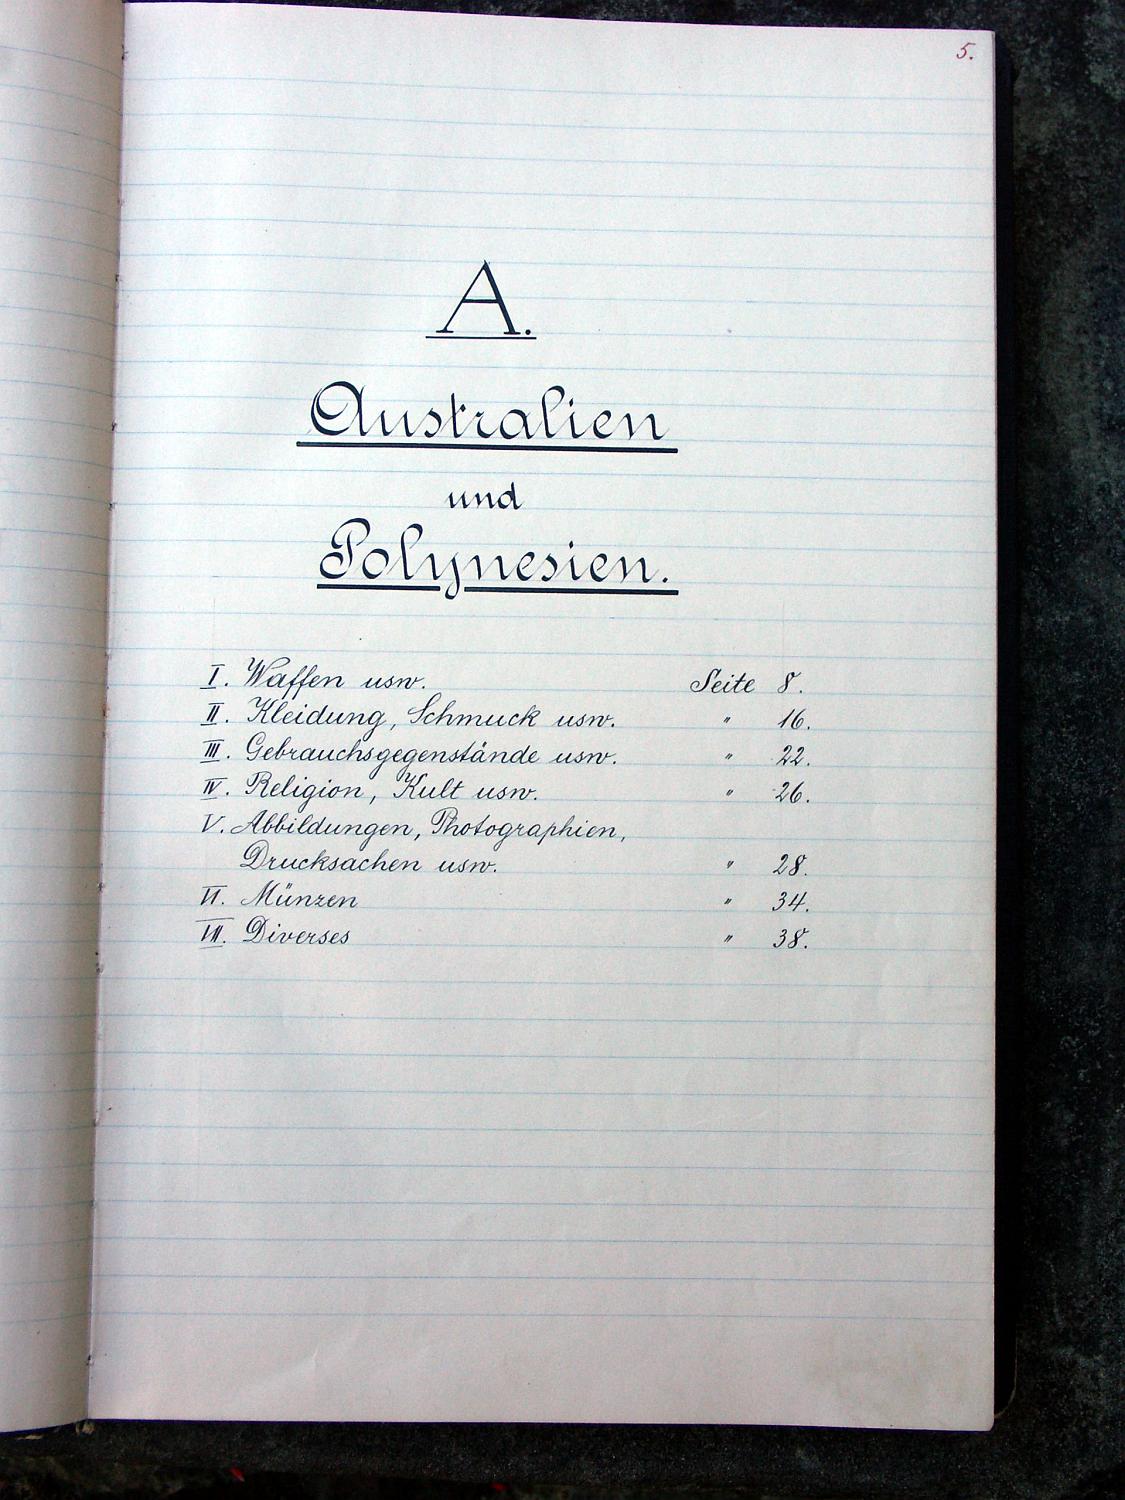 5.
A.
Australien
und
Polynesien.
I. Waffen usw. Seite 8.
II. Kleidung, Schmuck usw. " 16.
III. Gebrauchsgegenstände usw. " 22.
IV. Religion, Kult usw. " 26.
V. Abbildungen, Photographien,
Drucksachen usw. " 28.
VI. Münzen " 34.
VII. Diverses " 38.